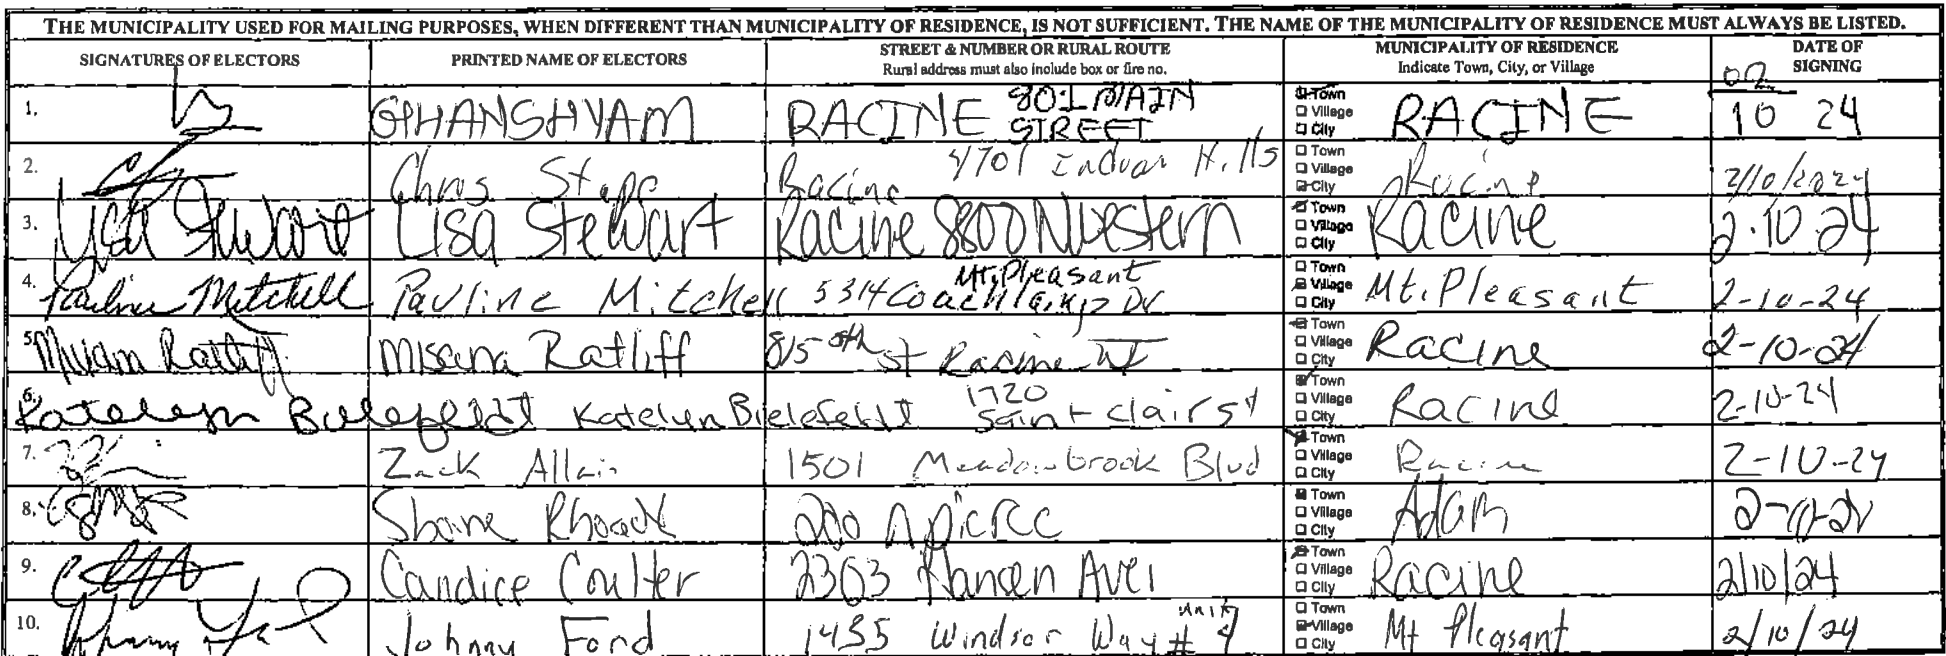 THE MUNICIPALITY USED FOR MAILING PURPOSES, WHEN DIFFERENT THAN MUNICIPALITY OF RESIDENCE, IS NOT SUFFICIENT. THE NAME OF THE MUNICIPALITY OF RESIDENCE MUST ALWAYS BE LISTED.
SIGNATURES OF ELECTORS
PRINTED NAME OF ELECTORS
STREET & NUMBER OR RURAL ROUTE
Rural address must also include box or fire no.
MUNICIPALITY OF RESIDENCE
Indicate Town, City, or Village
DATE OF
SIGNING
1. GHANSHYAM RACINE 801 MAIN
STREET
Town
Village
City
RACINE 02
10 24
2. Chris Racine 4701 Indian Hills
Town
Village
City
Racine 2/10/2024
3. Lisa Stewart Lisa Stewart Racine 8800 N Western
Town
Village
City
Racine 2.10.24
4. Pauline Mitchell Pauline Mitchell 5314 Coachlamp Dr
Mt. Pleasant
Town
Village
City
Mt. Pleasant 2-10-24
5. Ratliff Ratliff 815 8th St Racine WI
Town
Village
City
Racine 2-10-24
6. Katelyn Bielefeldt Katelyn Bielefeldt 1720
Saint clair st
Town
Village
City
Racine 2-10-24
7. Zack Allain 1501 Meadowbrook Blvd
Town
Village
City
Racine 2-10-24
8. Shane 200 N
Town
Village
City
Adam
9. Candice Coulter 2303 Hansen Ave
Town
Village
City
Racine 2/10/24
10. Johnny Ford 1435 Windsor Way # unit
Town
Village
City
Mt Pleasant 2/10/24